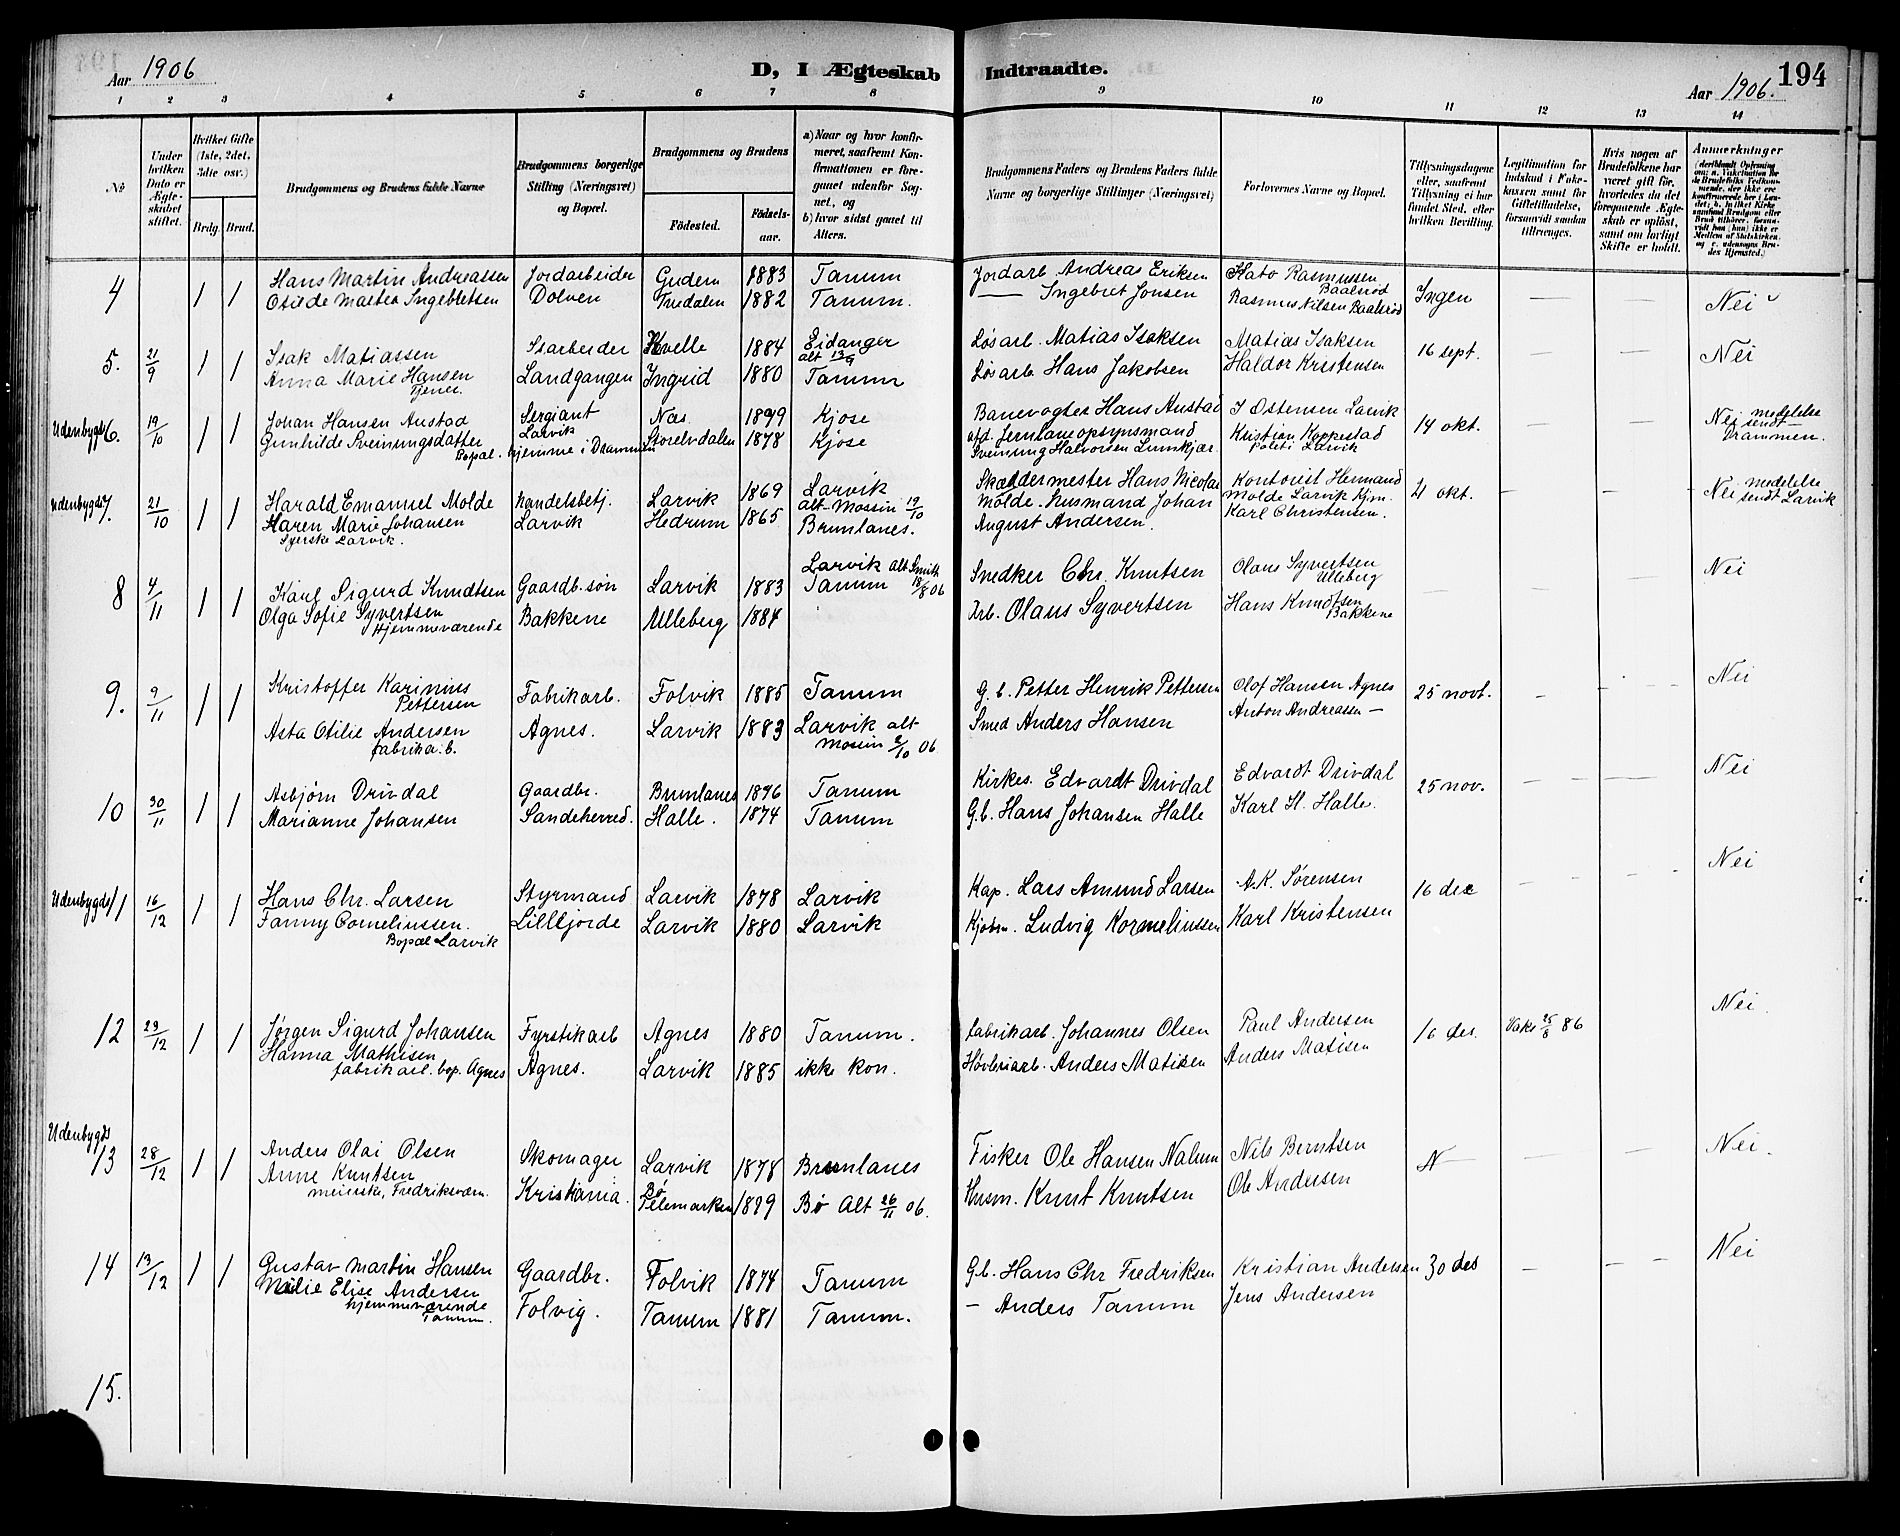 Aar 1906
D, I Ægteskab Indtraadte.
Aar 1906.
194
1 2 3 4 5 6 7 8 9 10 11 12 13 14
No
Under hvilken Dato er Ægteskabet stiftet.
Hvilket Gifte (1ste, 2det, 3die osv.)
Brdg. Brud.
Brudgommens og Brudens fulde Navne
Brudgommens borgerlige Stilling (Næringsvei) og Bopæl.
Brudgommens og Brudens
Födested.
Födselsaar.
a) Naar og hvor konfirmeret, saafremt Konfirmationen er foregaaet udenfor Sognet, og
b) hvor sidst gaaet til Alters.
Brudgommens Faders og Brudens Faders fulde Navne og borgerlige Stillinger (Næringsvei)
Forlovernes Navne og Bopæl.
Tillysningsdagene eller, saafremt Tillysning ei har fundet Sted, efter hvilken Bevilling.
Legitimation for Indskud i Enkekassen samt for Giftetilladelse, forsaavidt saadan tiltrænges.
Hvis nogen af Brudefolkene har været gift før, hvorledes da det foregaaende Ægteskab er opløst, samt om lovligt Skifte er holdt.
Anmærkninger
4 1 1 Hans Martin Andreassen Jordarbeider Gudem 1883 Tanum Jordarb Andreas Eriksen Hato Rasmussen Baalsrød Ingen — — Nei
Otilde Mathea Ingebretsen Dolven Tvedalen 1882 Tanum. — Ingebret Jonsen Rasmus Nilsen Baalsrød
5. 21/9 1 1 Isak Matiassen Isarbeider Kvelle 1884 Eidanger Løsarb. Matias Isaksen Matias Isaksen 16 sept. — Nei
alt 13/9
Anna Marie Hansen Landgangen Ingrid 1880 Tanum Løsarb. Hans Jakobsen Haldor Kristensen
Tjener.
Udenbygds 6. 19/10 1 1 Johan Hansen Austad Sergiant Larvik Næs 1899 Kjose Banevogter Hans Austad I Ostensen Larvik 14 okt. — — Nei medelelse sendt Drammen.
Gunhilde Sveinungsdatter Storelvdalen 1878 Kjose afd. Jernbaneopsynsmand Kristian Koppestad
Bopæl. hjemme i Drammen Sveinung Halvorsen Lunnkjær Politi Larvik
Udenbygds 7. 21/10 1 1 Harald Emanuel Molde Handelsbetj. Larvik 1869 Larvik Skræddermester Hans Nicolai Kontorist Hermand 21 okt. — — — Nei medelelse sendt Larvik
alt Mossin 19/10 Molde. Husmand Johan Molde Larvik Kjm.
Karen Marie Johansen Larvik Hedrum 1865 Brunlanes. August Andersen. Karl Christensen.
Syerske Larvik.
8 4/11 1 1 Karl Sigurd Knudtsen Gaardb. søn Larvik 1883 Larvik alt Smith 18/8 06 Snedker Chr. Knutsen Olaus Syvertsen Ulleberg — — — Nei
Tanum
Olga Sofie Syvertsen Bakkene Ulleberg 1884 Arb. Olaus Syvertsen Hans Knudtsen Bakkene
Hjemmeværende
9. 9/11 1 1 Kristoffer Karinius Pettersen Fabrikarb. Folvik 1885 Tanum G.b. Petter Henrik Pettersen Olof Hansen Agnes 25 novt. — — Nei
Asta Otilie Andersen Agnes. Larvik 1883 Larvik alt Smed Anders Hansen Anton Andreassen —
fabrikarb. Mossin 2/10 06
10 30/11 1 1 Asbjørn Drivdal Gaardbr. Brunlanes 1896 Tanum Kirkes. Edvardt Drivdal Edvardt Drivdal 25 nov. — — Nei
Marianne Johansen Sandeherred. Halle. 1874 Tanum G.b. Hans Johansen Halle Karl H. Halle.
Udenbygds 11 16/12 1 1 Hans Chr. Larsen Styrmand Larvik 1878 Larvik Kap. Lars Amund Larsen A.K. Sørensen 16 dec — — Nei
Fanny Corneliussen. Lilleljorde Larvik 1880 Larvik Kjøbm. Ludvig Korneliussen Karl Kristensen
Bopæl Larvik
12 23/12 1 1 Jørgen Sigurd Johansen Fyrstikarb Agnes 1880 Tanum. fabrikarb. Johannes Olsen Paul Andersen 16 des. Vaks 25/8 86 Nei.
Hanna Mathisen Agnes. Larvik 1885 ikke kon. Høvleriarb. Anders Matisen Anders Matisen
fabrikarb. bop. Agnes
Udenbygds 13 28/12 1 1 Anders Olai Olsen Skomager Larvik 1878 Brunlanes Fisker Ole Hansen Nalum Nils Berntsen N — — — Nei.
Anne Knutsen Kristiania. Bø Telemarken 1899 Bø Alt 26/11 06. Husm. Knut Knutsen Ole Andersen
Fredriksværn.
14 13/12 1 1 Gustav Martin Hansen Gaardbr. Folvik 1874 Tanum G.b. Hans Chr Fredriksen Kristian Andersen 30 des — — — Nei
Milie Elise Andersen Folvig. Tanum 1881 Tanum. — Anders Tanum Jens Andersen
hjemmeværende
Tanum.
15.